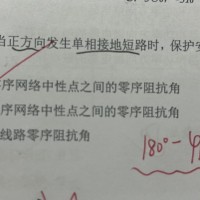 当正方向发生单相接地短路时，保护安
序网络中性点之间的零序阻抗角
序网络中性点之间的零序阻抗角
线路零序阻抗角
180°-φ